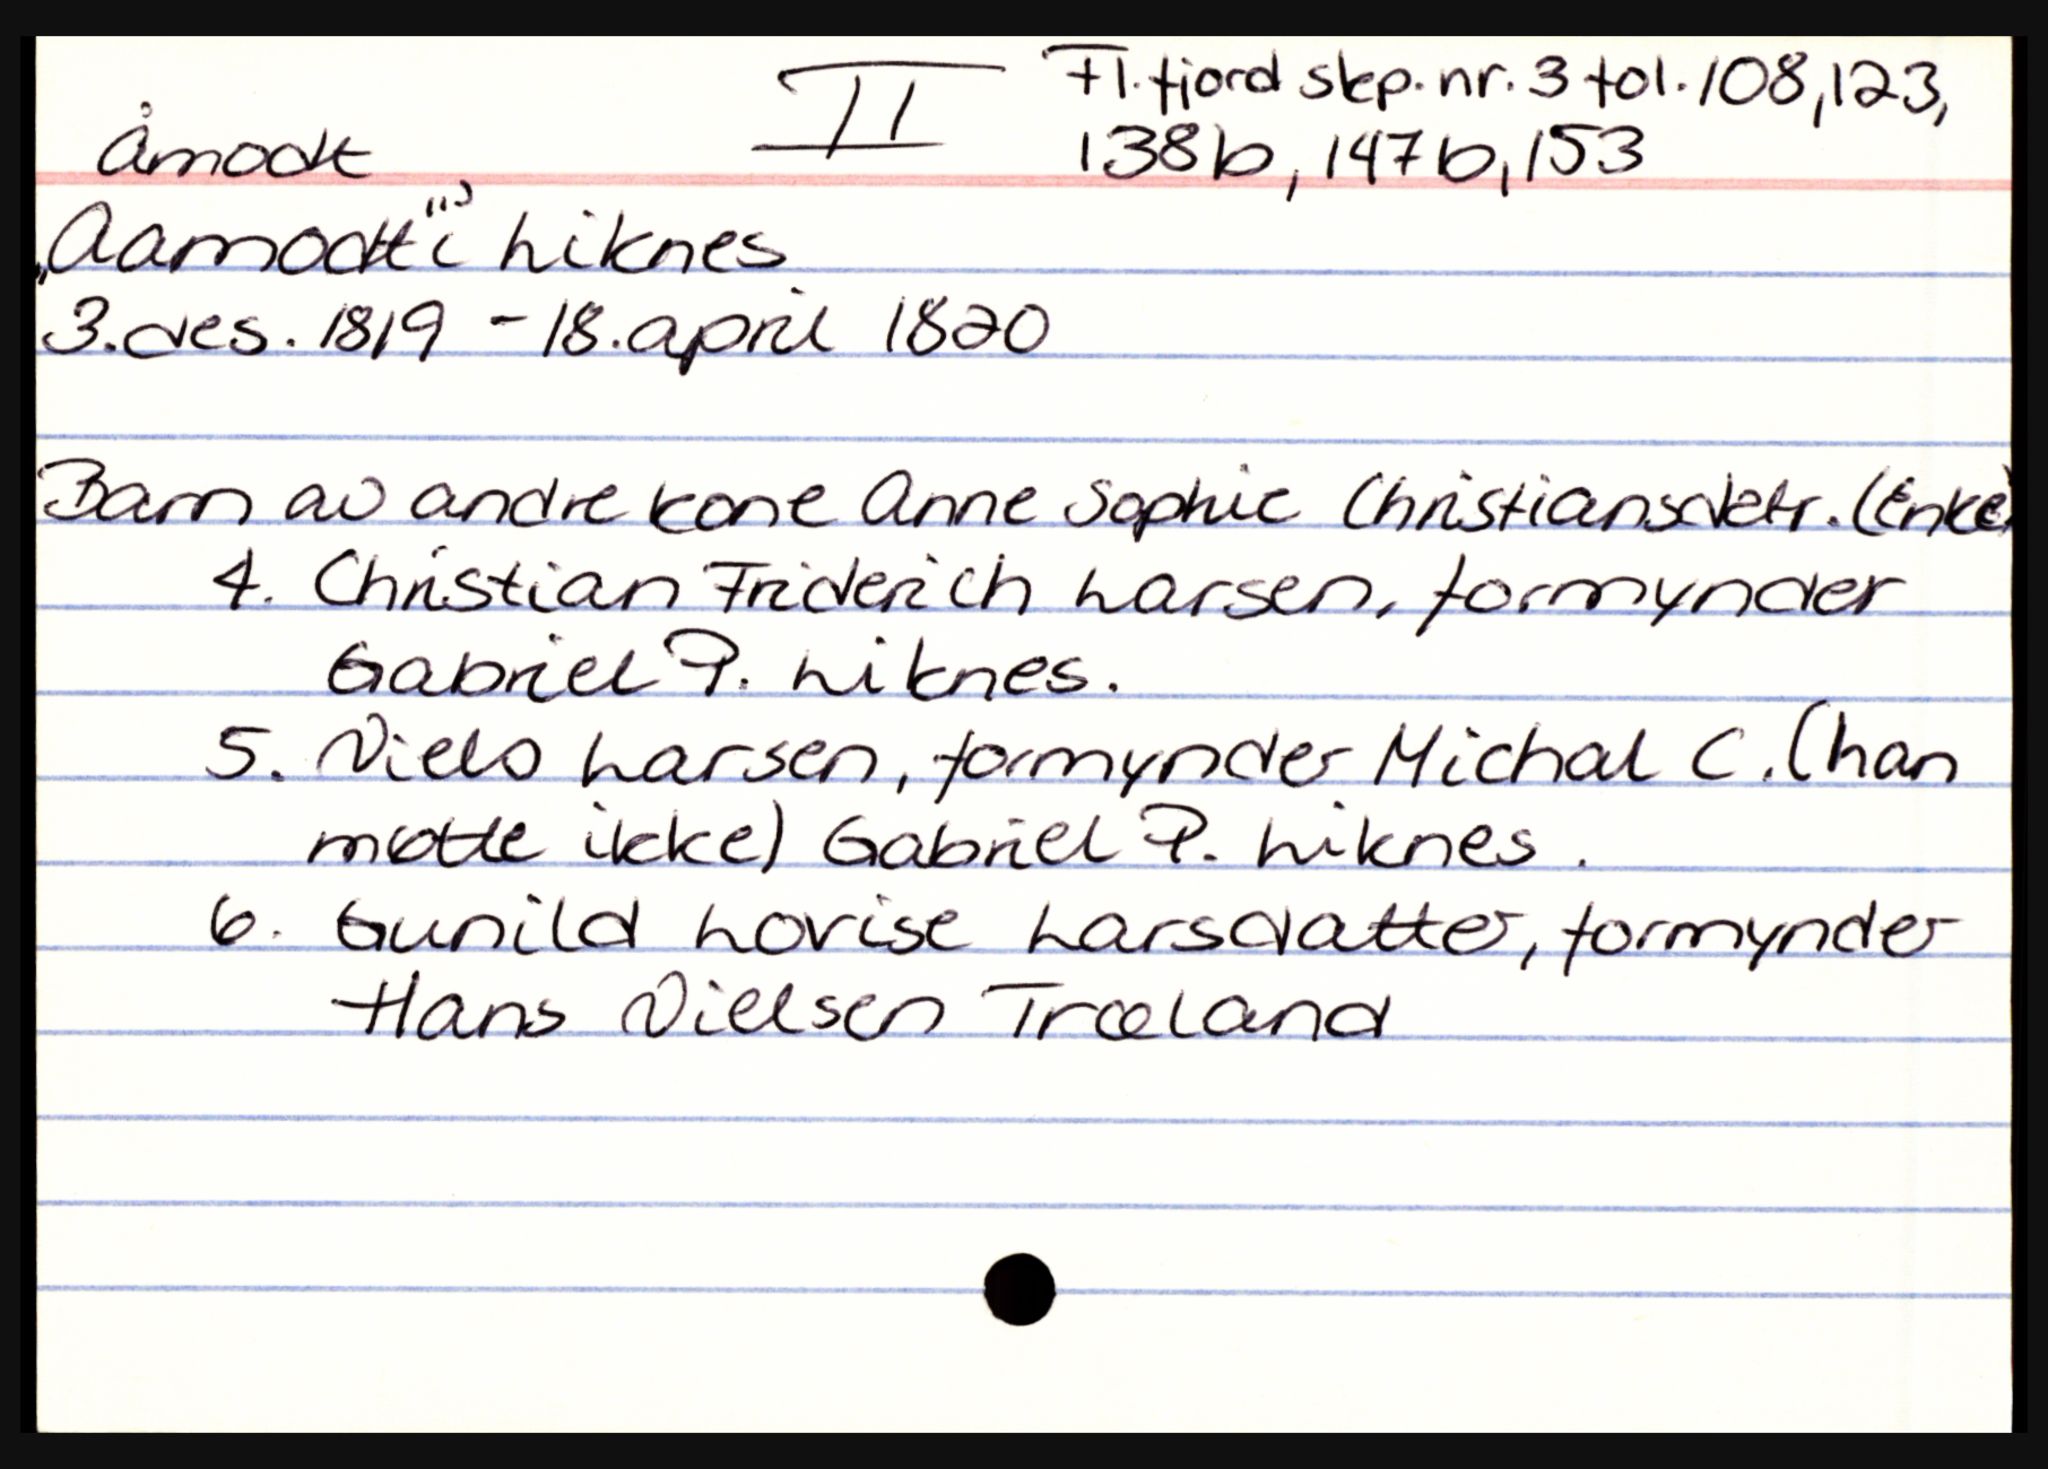 Åmodt II Fl.fjord skp. nr. 3 fol. 108, 123,
138b, 147b, 153
„Aamodt" i Liknes
3. des. 1819 - 18. april 1820
Barn av andre kone Anne Sophie Christiansdatr. (Enke)
4. Christian Friderich Larsen, formynder
Gabriel P. Liknes.
5. Niels Larsen, formynder Michal C. (han
møtte ikke) Gabriel P. Liknes.
6. Gunild Lovise Larsdatter, formynder
Hans Nielsen Træland